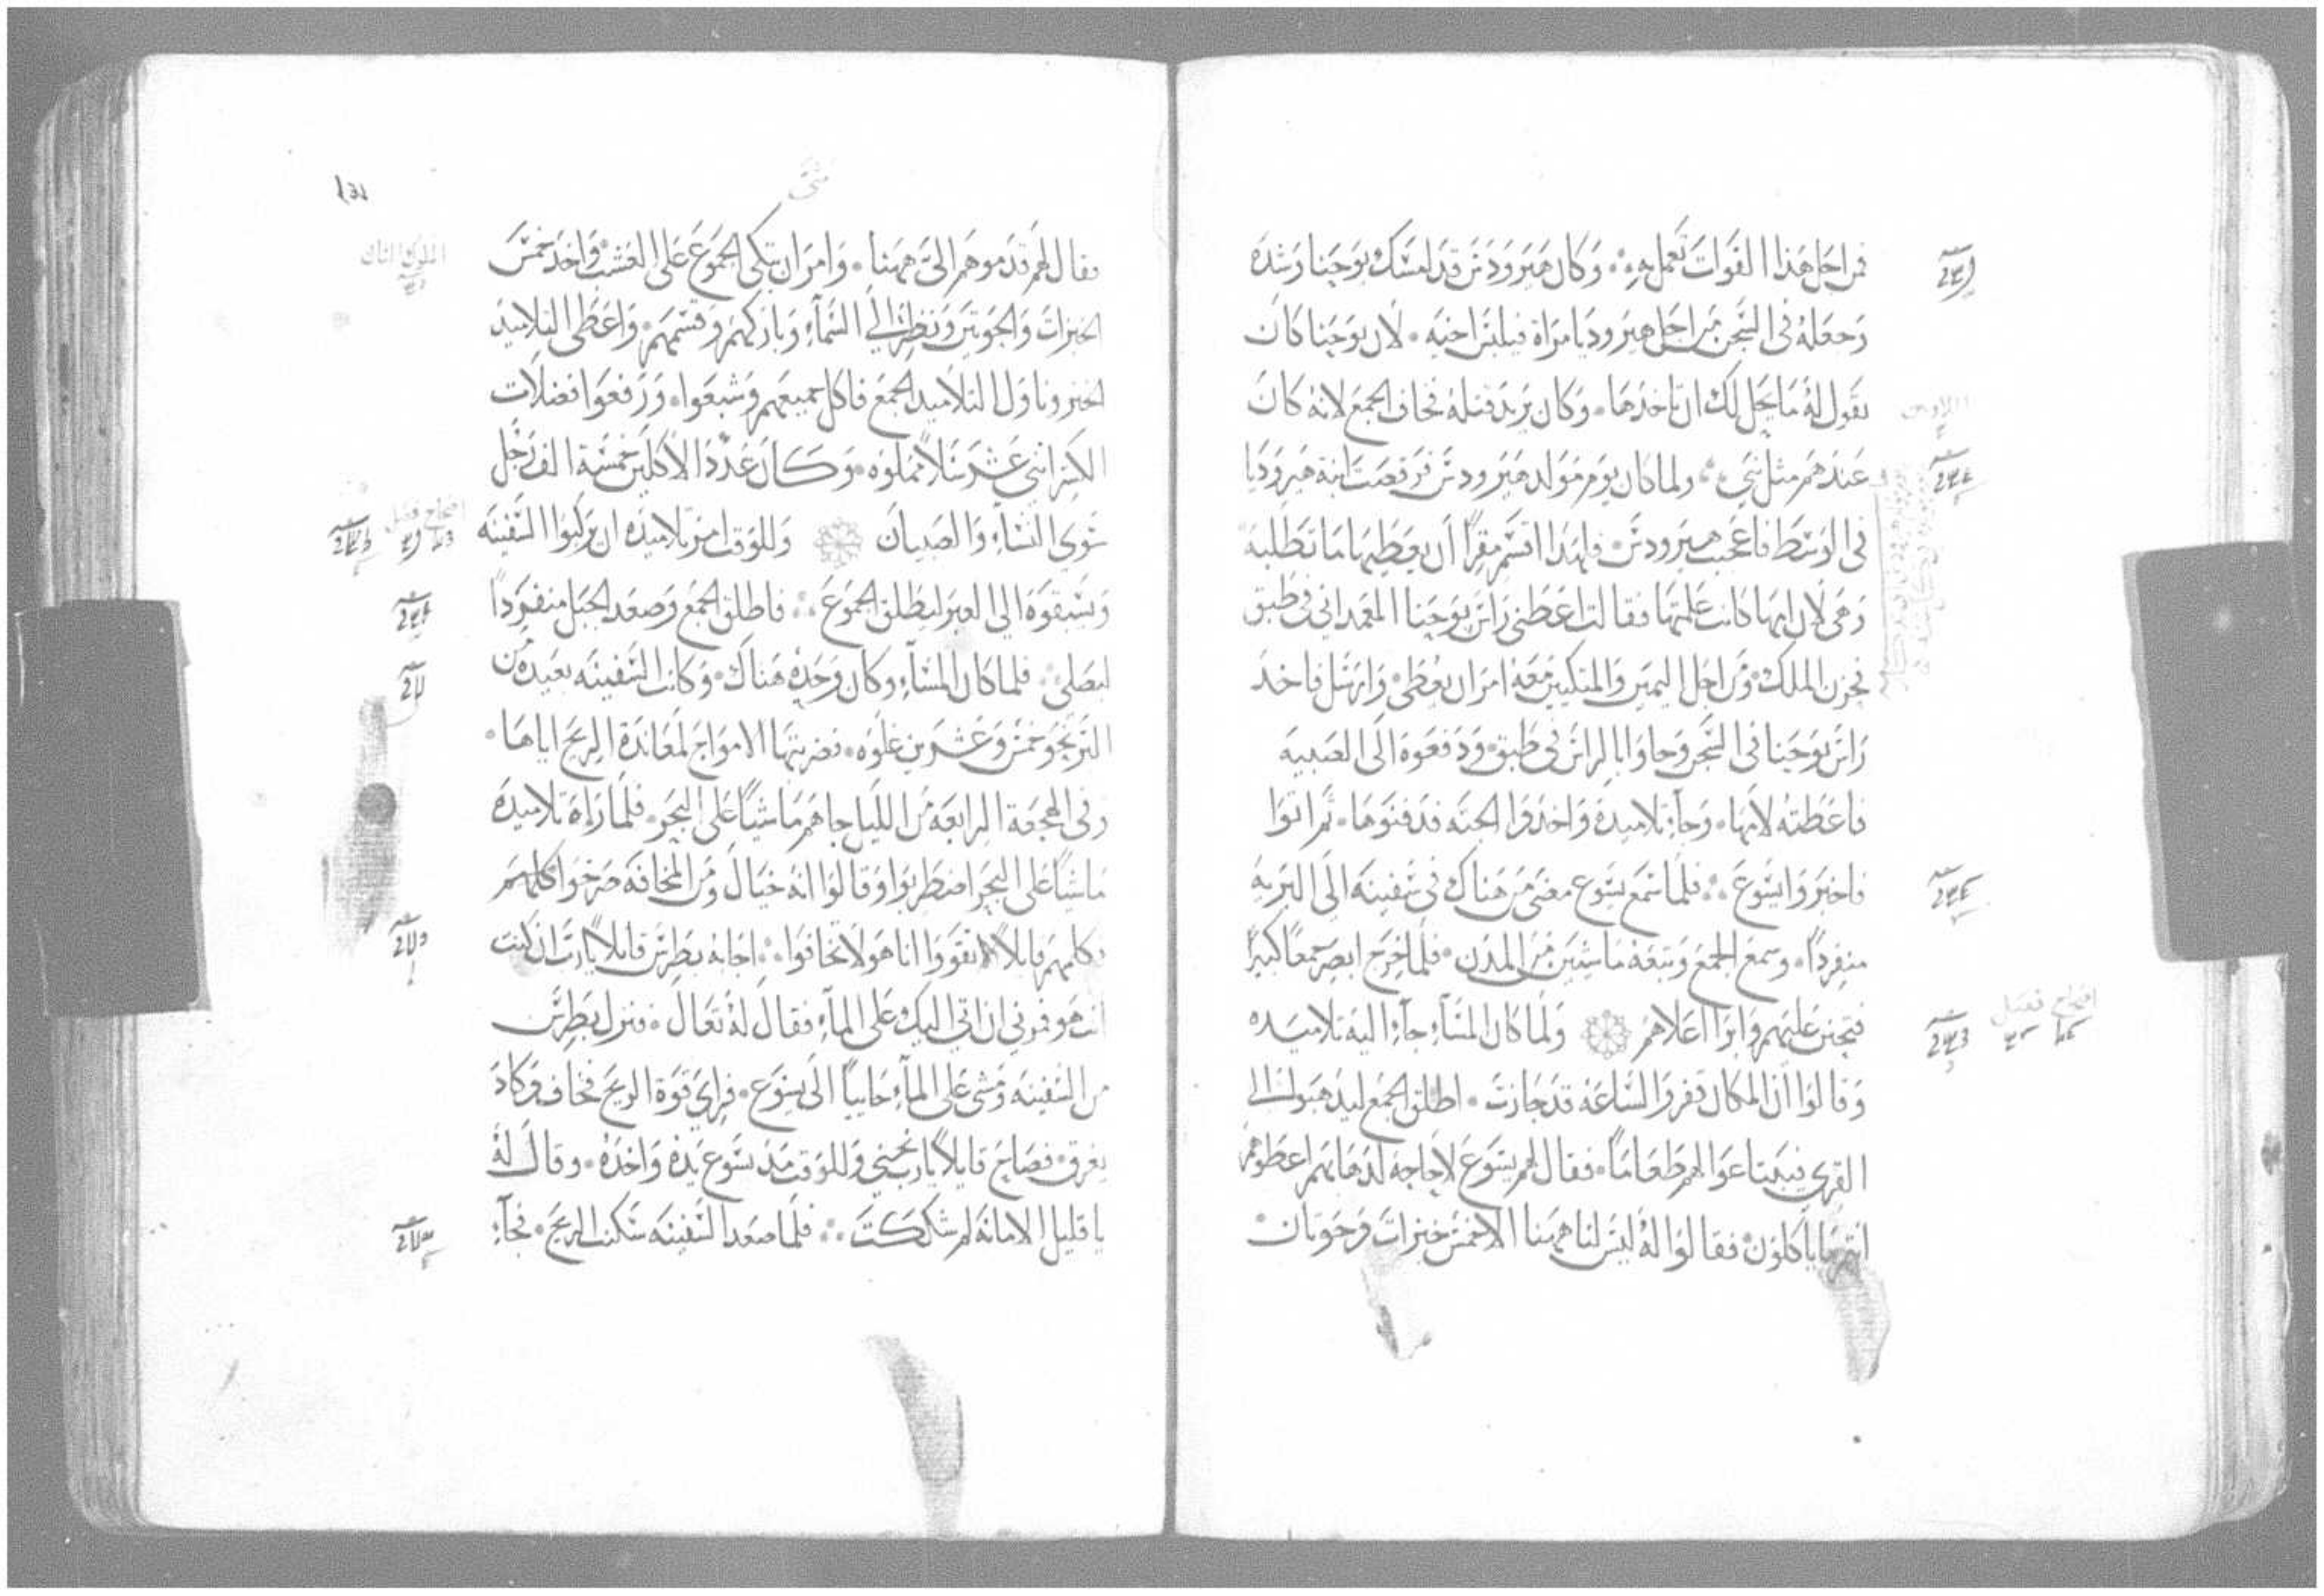 فمن اجل هذا القوات تعمل به وكان هيرودس قد امسك يوحنا وشده
وجعله في السجن من اجل هيروديا مراة فيلبس اخيه لان يوحنا كان
يقول له ما يحل لك ان تاخذها وكان يريد قتله فخاف الجمع لانه كان
عندهم مثل نبي ولما كان يوم مولد هيرودس فرقصت ابنة هيروديا
في الوسط فاعجبت هيرودس فلهذا اقسم مقرا ان يعطيها ما تطلبه
وهي لان امها كانت علمتها فقالت اعطني راس يوحنا المعمداني في طبق
فحزن الملك ومن اجل اليمين والمتكيين معه امر ان يعطى وارسل فاخذ
راس يوحنا في السجن وجاوا بالراس في طبق ودفعوه الى الصبيه
فاعطته لامها وجآء تلاميذه واخذوا الجثه فدفنوها ثم اتوا
فاخبروا يسوع فلما سمع يسوع مضى من هناك في سفينه الى البريه
منفردا وسمع الجمع وتبعه ماشيين من المدن فلما خرج ابصر جمعا كبيرا
فتحنن عليهم وابرا اعلاهم ولما كان المسآء جآء اليه تلاميذه
وقالوا ان المكان قفر والساعه قد جازت اطلق الجمع ليذهبوا الى
القرى فيبتاعوا لهم طعاما فقال لهم يسوع لا حاجه لذهابهم اعطوهم
انتم ما ياكلون فقالوا له ليس لنا ههنا الا خمس خبزات وحوتان
افتتاح فصل
متى
فقال لهم قدموهم الي ههنا وامر ان يتكي الجموع على العشب واخذ خمس
الخبزات والحوتين ونظر الى السمآء وباركهم وقسمهم واعطى التلاميذ
الخبز وناول التلاميذ الجمع فاكل جميعهم وشبعوا ورفعوا فضلات
الكسر اثني عشر سلا مملوه وكان عدد الاكلين خمسة الف رجل
سوى النسآء والصبيان وللوقت امر تلاميذه ان يركبوا السفينه
ويسبقوه الى العبر ليطلق الجموع فاطلق الجمع وصعد الجبل منفردا
ليصلى فلما كان المسآء وكان وحده هناك وكانت السفينه بعيده من
البر نحو خمس وعشرين غلوه فضربتها الامواج لمعاندة الريح اياها
وفي الهجعة الرابعه من الليل جاهم ماشيا على البحر فلما راه تلاميذه
ماشيا على البحر اضطربوا وقالوا انه خيال ومن المخافه صرخوا كلهم
فكلمهم قايلا تقووا انا هو لا تخافوا اجابه بطرس قايلا يارب ان كنت
انت هو فمرني ان اتي اليك على المآء فقال له تعال فنزل بطرس
من السفينه ومشى على المآء جاييا الى يسوع فراي قوة الريح فخاف وكاد
يغرق فصاح قايلا يارب نجني وللوقت مد يسوع يده واخذه وقال له
يا قليل الامانة لم شككت فلما صعد السفينه سكنت الريح فجآء
افتتاح فصل